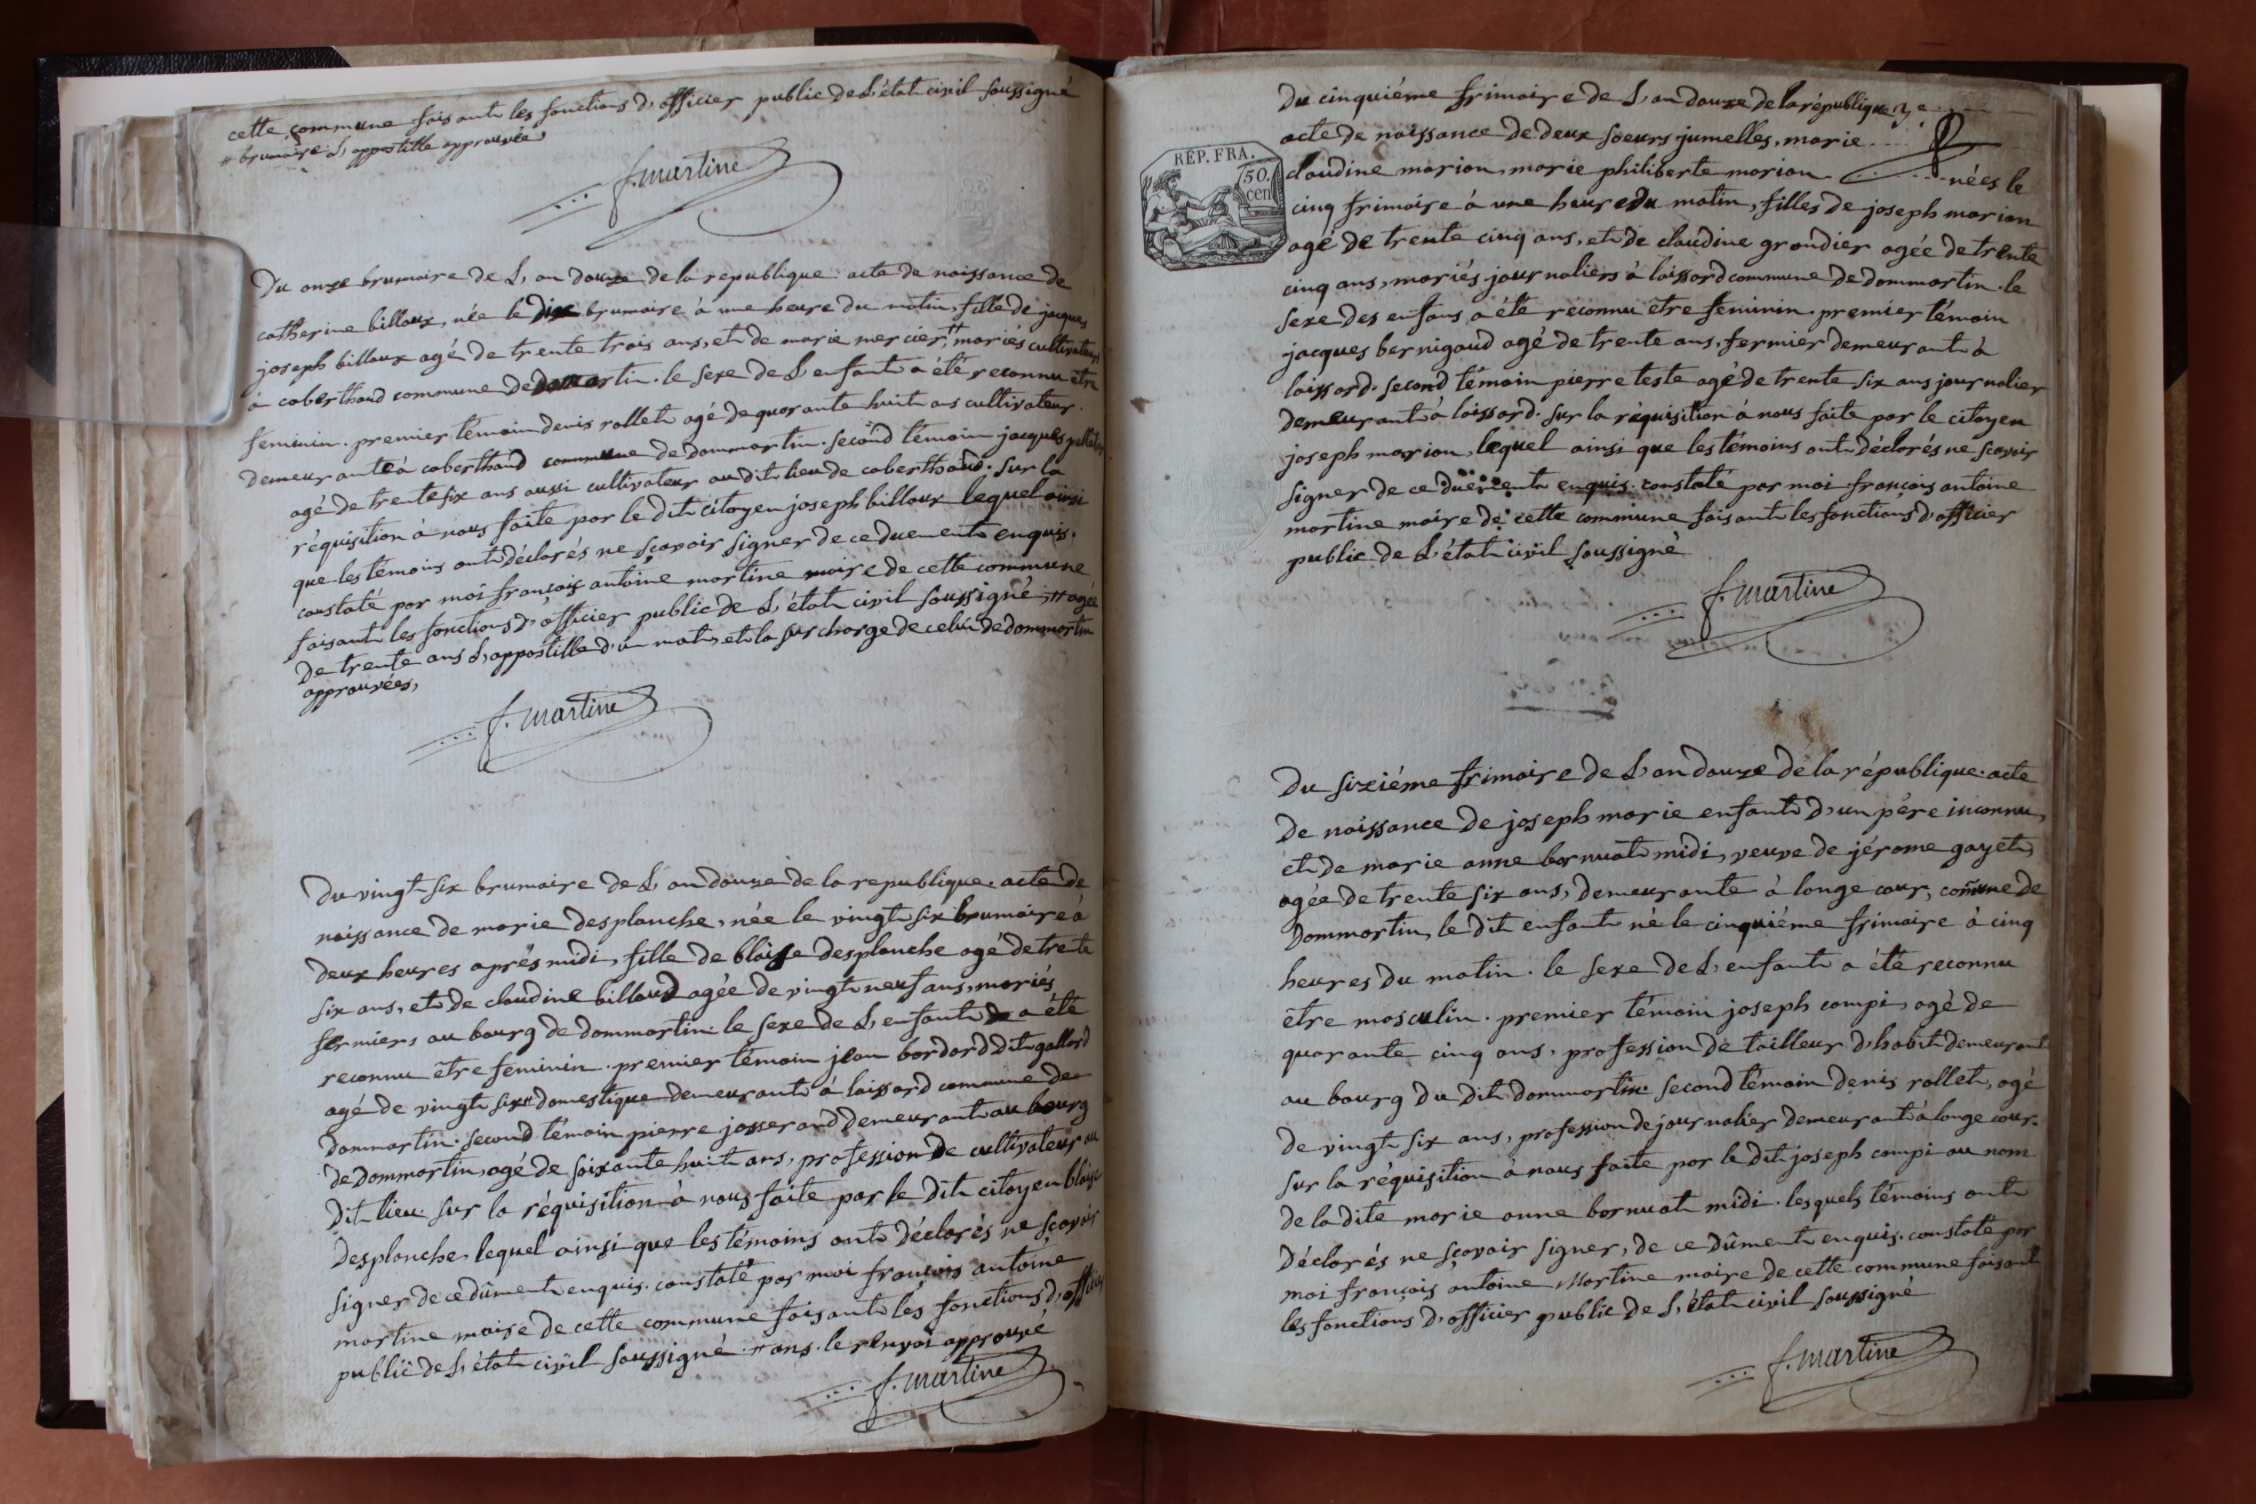 cette commune faisant les fonctions d'officier public de L'état civil soussigné
# brumaire. L'appostille approuvée
f. martine
Du onze brumaire de L'an douze de la republique. acte de naissance de
catherine billoux, née le dix brumaire à une heure du matin, fille de jacques
joseph billoux agé de trente trois ans, et de marie mercier # mariés cultivateurs
à coberthoud commune de dommartin. le sexe de L'enfant a été reconnu être
feminin. premier témoin denis rollet agé de quarante huit ans cultivateur
demeurant à coberthoud commune de dommartin. second témoin jacques
agé de trente six ans aussi cultivateur audit lieu de coberthoud. Sur la
réquisition à nous faite par le dit citoyen joseph billoux lequel ainsi
que les témoins ont déclarés ne sçavoir signer de ce duement enquis.
constaté par moi françois antoine martine maire de cette commune
faisant les fonctions d'officier public de L'état civil soussigné, # agée
de trente ans L'appostille d'un mot, et la surcharge de celui de dommartin
approuvées,
f. martine
Du vingt six brumaire de L'an douze de la republique. acte de
naissance de marie desplanche, née le vingt six brumaire à
deux heures après midi, fille de blaise desplanche agé de trente
six ans, et de claudine billoud agée de vingt neuf ans, mariés
fermiers au bourg de dommartin. le sexe de L'enfant a été
reconnu etre feminin. premier témoin jean bordard dit gallard
agé de vingt six # domestique demeurant à loissard commune de
dommartin. second témoin pierre josserand demeurant au bourg
de dommartin, agé de soixante huit ans, profession de cultivateur au
dit lieu. sur la réquisition à nous faite par le dit citoyen blaise
desplanche, lequel ainsi que les témoins ont déclarés ne sçavoir
signer de ce dûment enquis. constaté par moi françois antoine
martine maire de cette commune faisant les fonctions d'officier
public de L'état civil soussigné. # ans. le renvoi approuvé
f. martine
Du cinquiéme frimaire de L'an douze de la république
acte de naissance de deux soeurs jumelles, marie
claudine marion, marie philiberte marion nées le
REP. FRA.
50.
cen
cinq frimaire à une heure du matin, filles de joseph marion
agé de trente cinq ans, et de claudine grandier agée de trente
cinq ans, mariés journaliers à loissard commune de dommartin. le
sexe des enfans a été reconnu etre feminin. premier témoin
jacques bernigaud agé de trente ans, fermier demeurant à
loissard. second témoin pierre teste agé de trente six ans journalier
demeurant à loissard. sur la réquisition à nous faite par le citoyen
joseph marion, lequel ainsi que les témoins ont déclarés ne sçavoir
signer de ce duement enquis. constaté par moi françois antoine
martine maire de cette commune faisant les fonctions d'officier
public de L'état civil soussigné
f. martine
Du sixiéme frimaire de L'an douze de la république. acte
de naissance de joseph marie enfant d'un père inconnu,
et de marie anne bornuat midi, veuve de jérome gayet,
agée de trente six ans, demeurante à longe cour, comune de
Dommartin, le dit enfant né le cinquiéme frimaire à cinq
heures du matin. le sexe de L'enfant a été reconnu
etre masculin. premier témoin joseph compi, agé de
quarante cinq ans, profession de tailleur d'habit demeurant
au bourg du dit dommartin. second témoin denis rollet, agé
de vingt six ans, profession de journalier demeurant à longe cour.
sur la réquisition à nous faite par le dit joseph compi au nom
de la dite marie anne bornuat midi. lesquels témoins ont
déclarés ne sçavoir signer, de ce dûment enquis. constaté par
moi françois antoine Martine maire de cette commune faisant
les fonctions d'officier public de L'état civil soussigné
f. martine